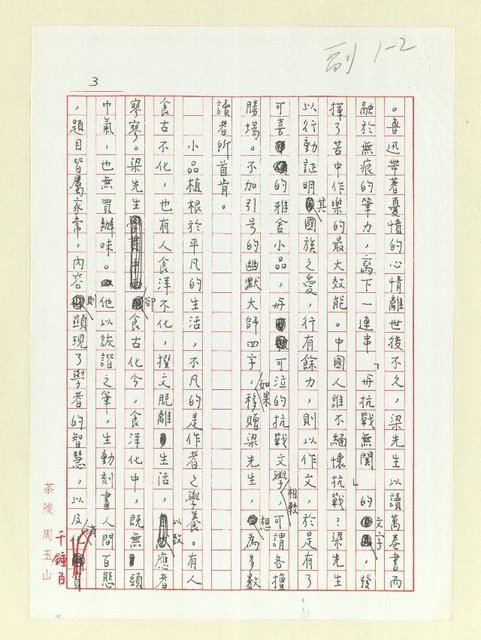 副 1-2
3
。魯迅帶著憂憤的心情離世後不久，梁先生以讀萬卷書而
融於無痕的筆力，寫下一連串「与抗戰無關」的文字，發
揮了苦中作樂的最大效能。中國人誰不緬懷抗戰？梁先生
以行動証明其國族之愛，行有餘力，則以作文，於是有了
可喜的雅舍小品，与可泣的抗戰文學相較，可謂各擅
勝場。不加引号的幽默大師四字，如果移贈梁先生，想為多數
讀者所首肯。
小品植根於平凡的生活，不凡的是作者之學養。有人
食古不化，也有人食洋不化，撰文脫離生活，以致應者
寥寥。梁先生卻食古化今，食洋化中，既無頭
巾氣，也無買辦味。他以詼諧之筆，生動刻畫人間百態
，題目皆屬家常，內容則顯現了學者的智慧，以及
千錘百
茶陵 周玉山